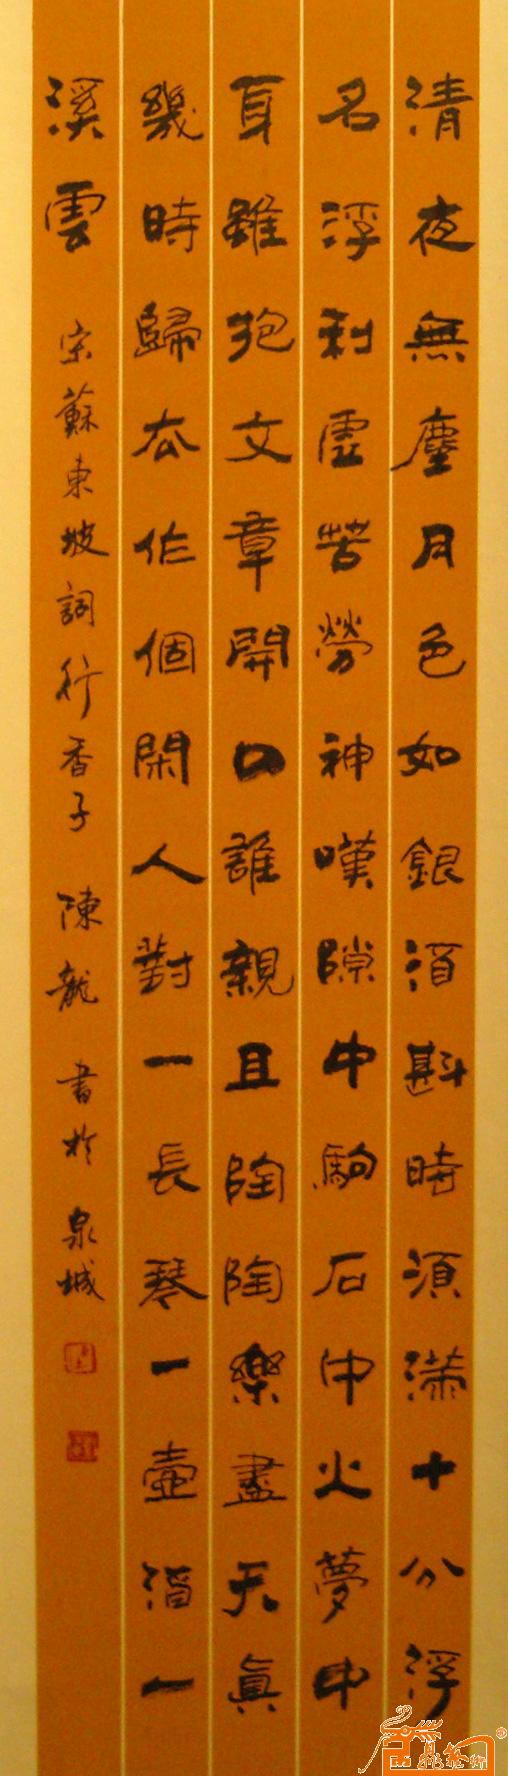 清夜無塵月色如銀酒斟時須滿十分浮
名浮利虛苦勞神嘆隙中駒石中火夢中
身雖抱文章開口誰親且陶陶樂盡天真
幾時歸去作個閑人對一長琴一壺酒一
溪雲 宋蘇東坡詞行香子 陳龍 書於 泉城